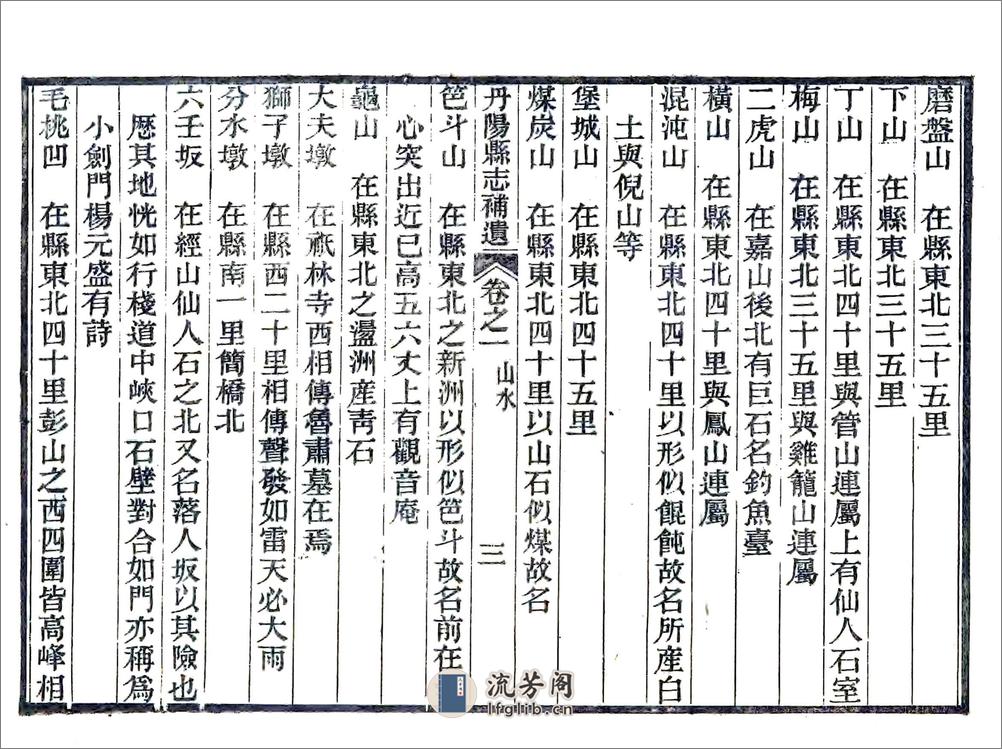 磨盤山　在縣東北三十五里
下山　在縣東北三十五里
丁山　在縣東北四十里與管山連屬上有仙人石室
梅山　在縣東北三十五里與雞籠山連屬
二虎山　在嘉山後北有巨石名釣魚臺
橫山　在縣東北四十里與鳳山連屬
混沌山　在縣東北四十里以形似餛飩故名所産白
土與倪山等
堡城山　在縣東北四十五里
煤炭山　在縣東北四十里以山石似煤故名
丹陽縣志補遺　卷之一　山水　三
笆斗山　在縣東北之新洲以形似笆斗故名前在
心突出近已高五六丈上有觀音庵
龜山　在縣東北之盪洲産靑石
大夫墩　在祇林寺西相傳魯肅墓在焉
獅子墩　在縣西二十里相傳聲發如雷天必大雨
分水墩　在縣南一里簡橋北
六壬坂　在經山仙人石之北又名落人坂以其險也
歷其地恍如行棧道中峽口石壁對合如門亦稱爲
小劍門楊元盛有詩
毛桃凹　在縣東北四十里彭山之西四圍皆高峰相
流芳阁
lfglib.cn